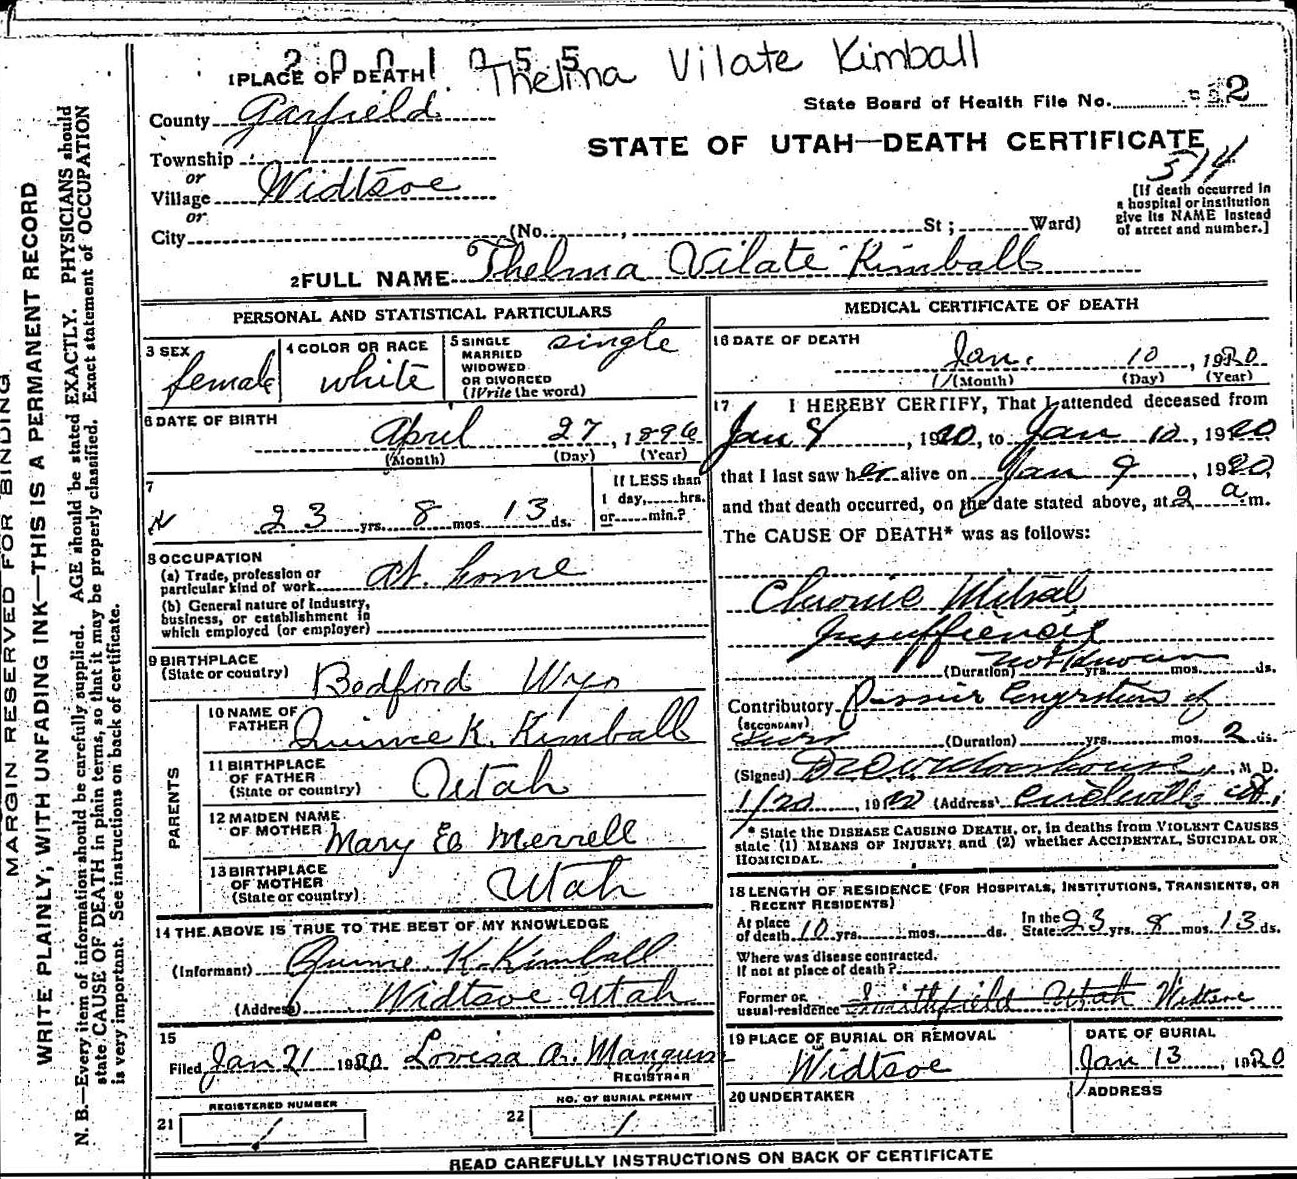 2001055
Thelma Vilate Kimball
1 PLACE OF DEATH
State Board of Health File No. 2
County Garfield
STATE OF UTAH—DEATH CERTIFICATE
Township
or
Village Widtsoe
or
City (No. , St ; Ward)
[If death occurred in
a hospital or institution
give its NAME instead
of street and number.]
2 FULL NAME Thelma Vilate Kimball
PERSONAL AND STATISTICAL PARTICULARS
3 SEX female
4 COLOR OR RACE white
5 SINGLE
MARRIED
WIDOWED
OR DIVORCED
(Write the word)
single
6 DATE OF BIRTH
April 27, 1896
(Month) (Day) (Year)
7
23 yrs. 8 mos. 13 ds.
If LESS than
1 day, hrs.
or min.?
8 OCCUPATION
(a) Trade, profession or
particular kind of work At home
(b) General nature of industry,
business, or establishment in
which employed (or employer)
9 BIRTHPLACE
(State or country) Bedford Wyo
PARENTS
10 NAME OF
FATHER Quince K. Kimball
11 BIRTHPLACE
OF FATHER
(State or country) Utah
12 MAIDEN NAME
OF MOTHER Mary E Merrell
13 BIRTHPLACE
OF MOTHER
(State or country) Utah
14 THE ABOVE IS TRUE TO THE BEST OF MY KNOWLEDGE
(Informant) Quince K. Kimball
(Address) Widtsoe Utah
15
Filed Jan 21 1920 Lovisa A. Mangum
REGISTRAR
REGISTERED NUMBER
21 1
NO. OF BURIAL PERMIT
22 1
MEDICAL CERTIFICATE OF DEATH
16 DATE OF DEATH
Jan. 10, 1920
(Month) (Day) (Year)
17 I HEREBY CERTIFY, That I attended deceased from
Jan 8, 1920, to Jan 10, 1920
that I last saw her alive on Jan 9, 1920,
and that death occurred, on the date stated above, at 2 a.m.
The CAUSE OF DEATH* was as follows:
Chronic Mitral
(Duration) not known yrs. mos. ds.
Contributory
(SECONDARY)
(Duration) yrs. mos. 2 ds.
(Signed) M D.
1/20, 1920 (Address)
* State the DISEASE CAUSING DEATH, or, in deaths from VIOLENT CAUSES
state (1) MEANS OF INJURY; and (2) whether ACCIDENTAL, SUICIDAL OR
HOMICIDAL.
18 LENGTH OF RESIDENCE (FOR HOSPITALS, INSTITUTIONS, TRANSIENTS, OR
RECENT RESIDENTS)
At place
of death 10 yrs. mos. ds.
In the
State 23 yrs. 8 mos. 13 ds.
Where was disease contracted.
If not at place of death?
Former or
usual residence Smithfield Utah Widtsoe
19 PLACE OF BURIAL OR REMOVAL
Widtsoe
DATE OF BURIAL
Jan 13, 1920
20 UNDERTAKER
ADDRESS
READ CAREFULLY INSTRUCTIONS ON BACK OF CERTIFICATE
MARGIN RESERVED FOR BINDING
WRITE PLAINLY, WITH UNFADING INK—THIS IS A PERMANENT RECORD
N. B.—Every item of information should be carefully supplied. AGE should be stated EXACTLY. PHYSICIANS should
state CAUSE OF DEATH in plain terms, so that it may be properly classified. Exact statement of OCCUPATION
is very important. See instructions on back of certificate.